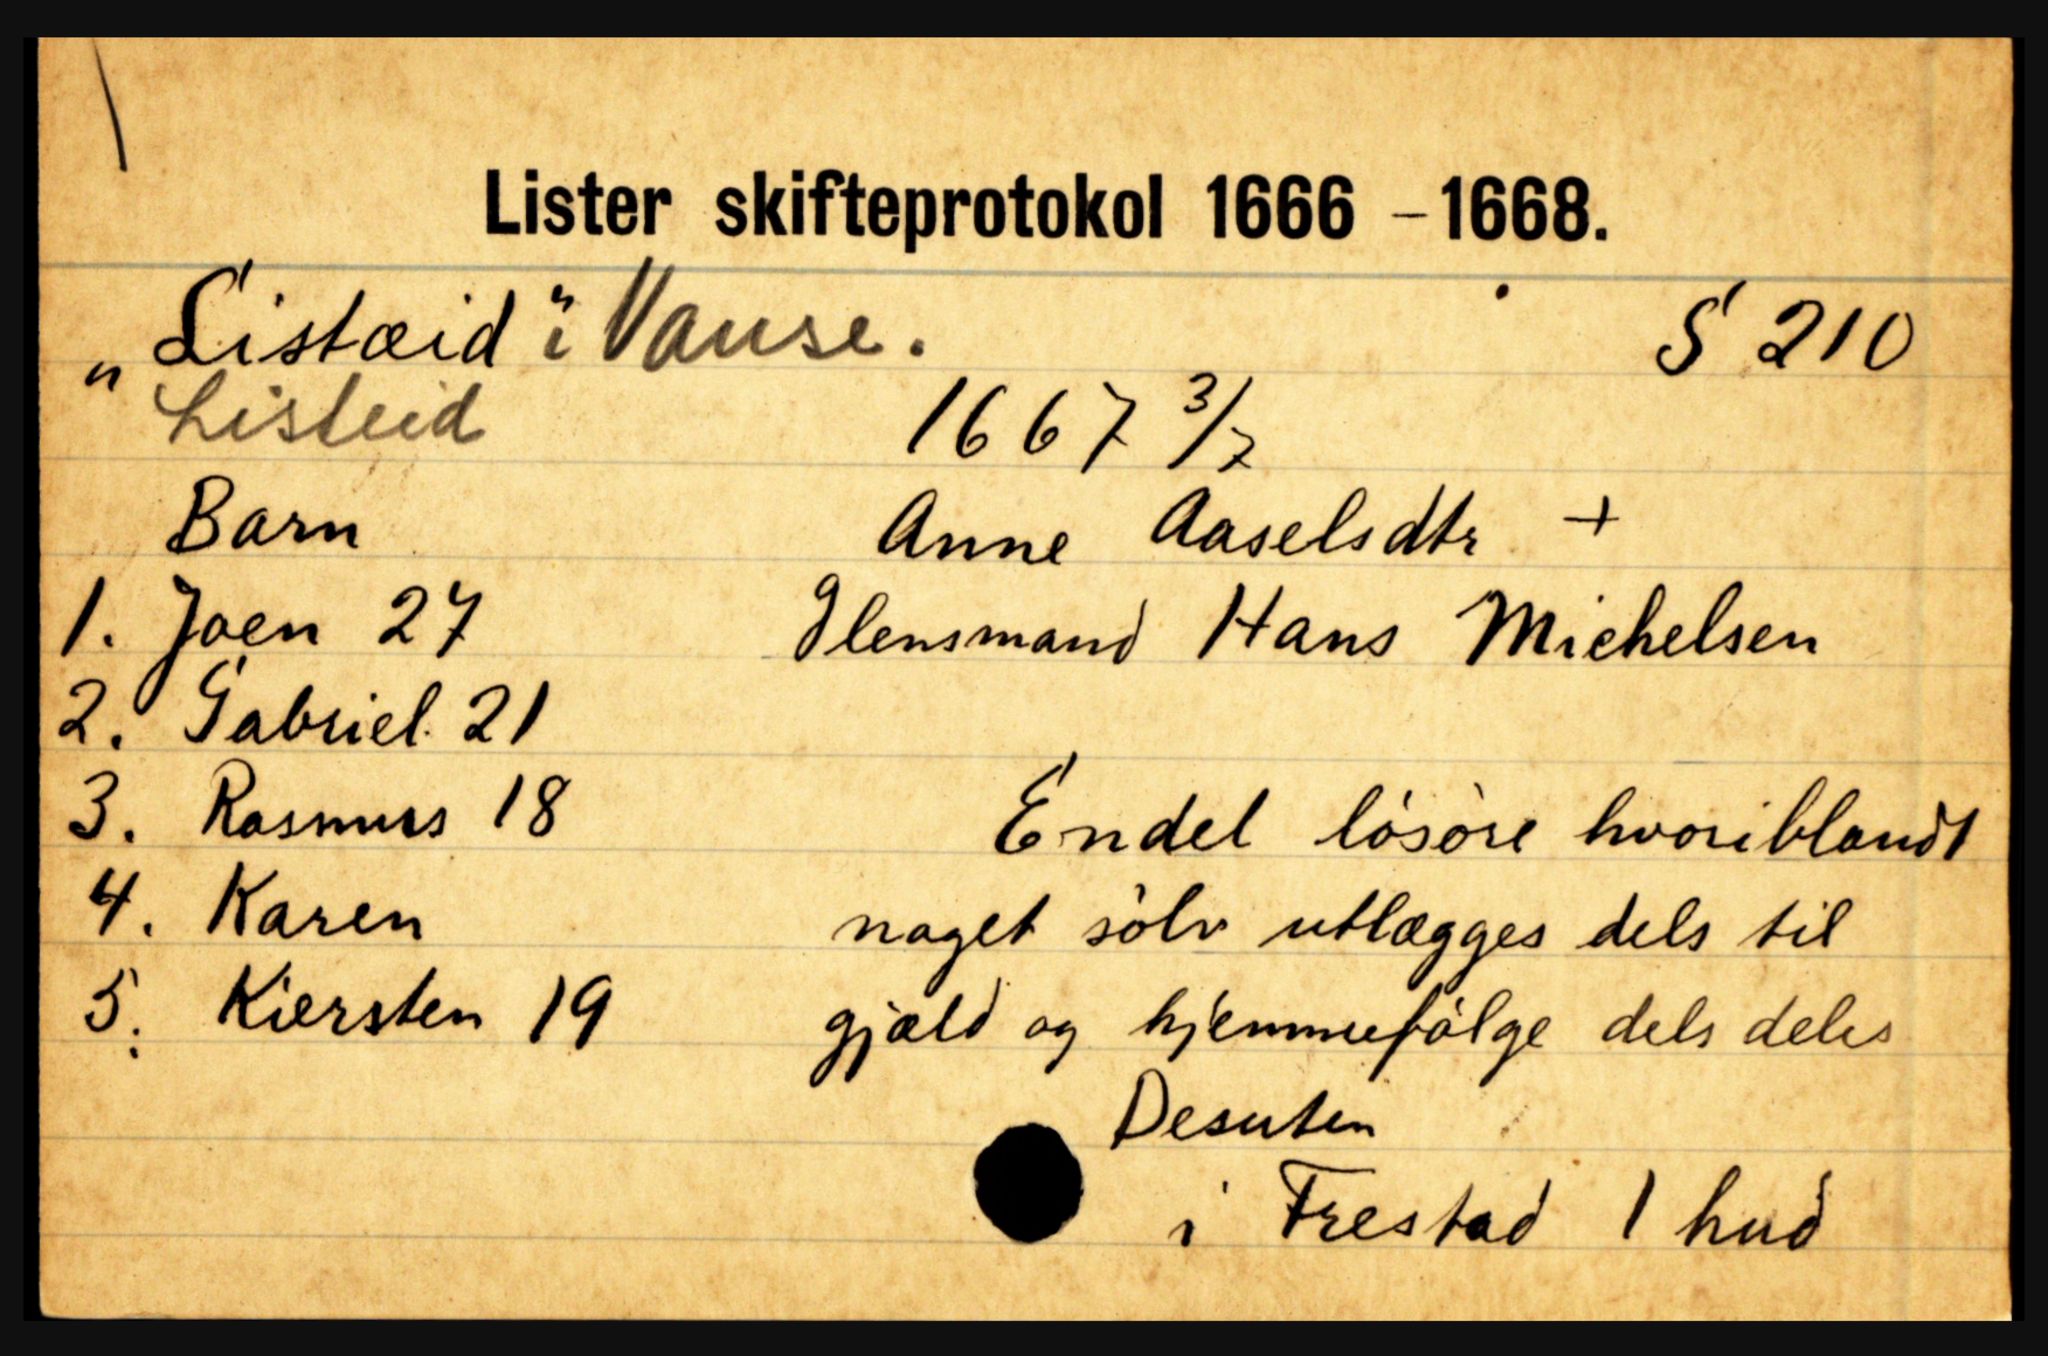 Lister skifteprotokol 1666 - 1668.
„Listæid" i Vanse. S 210
Listeid
1667 3/7
Barn Anne Aaselsdtr +
1. Joen 27 Glensmand Hans Michelsen
2. Gabriel 21
3. Rasmus 18 Endel lósóre hvoriblandt
4. Karen noget sólv utlægges dels til
5. Kiersten 19 gjæld og hjemmefólge dels deles
Desuten
i Frestad 1 hud